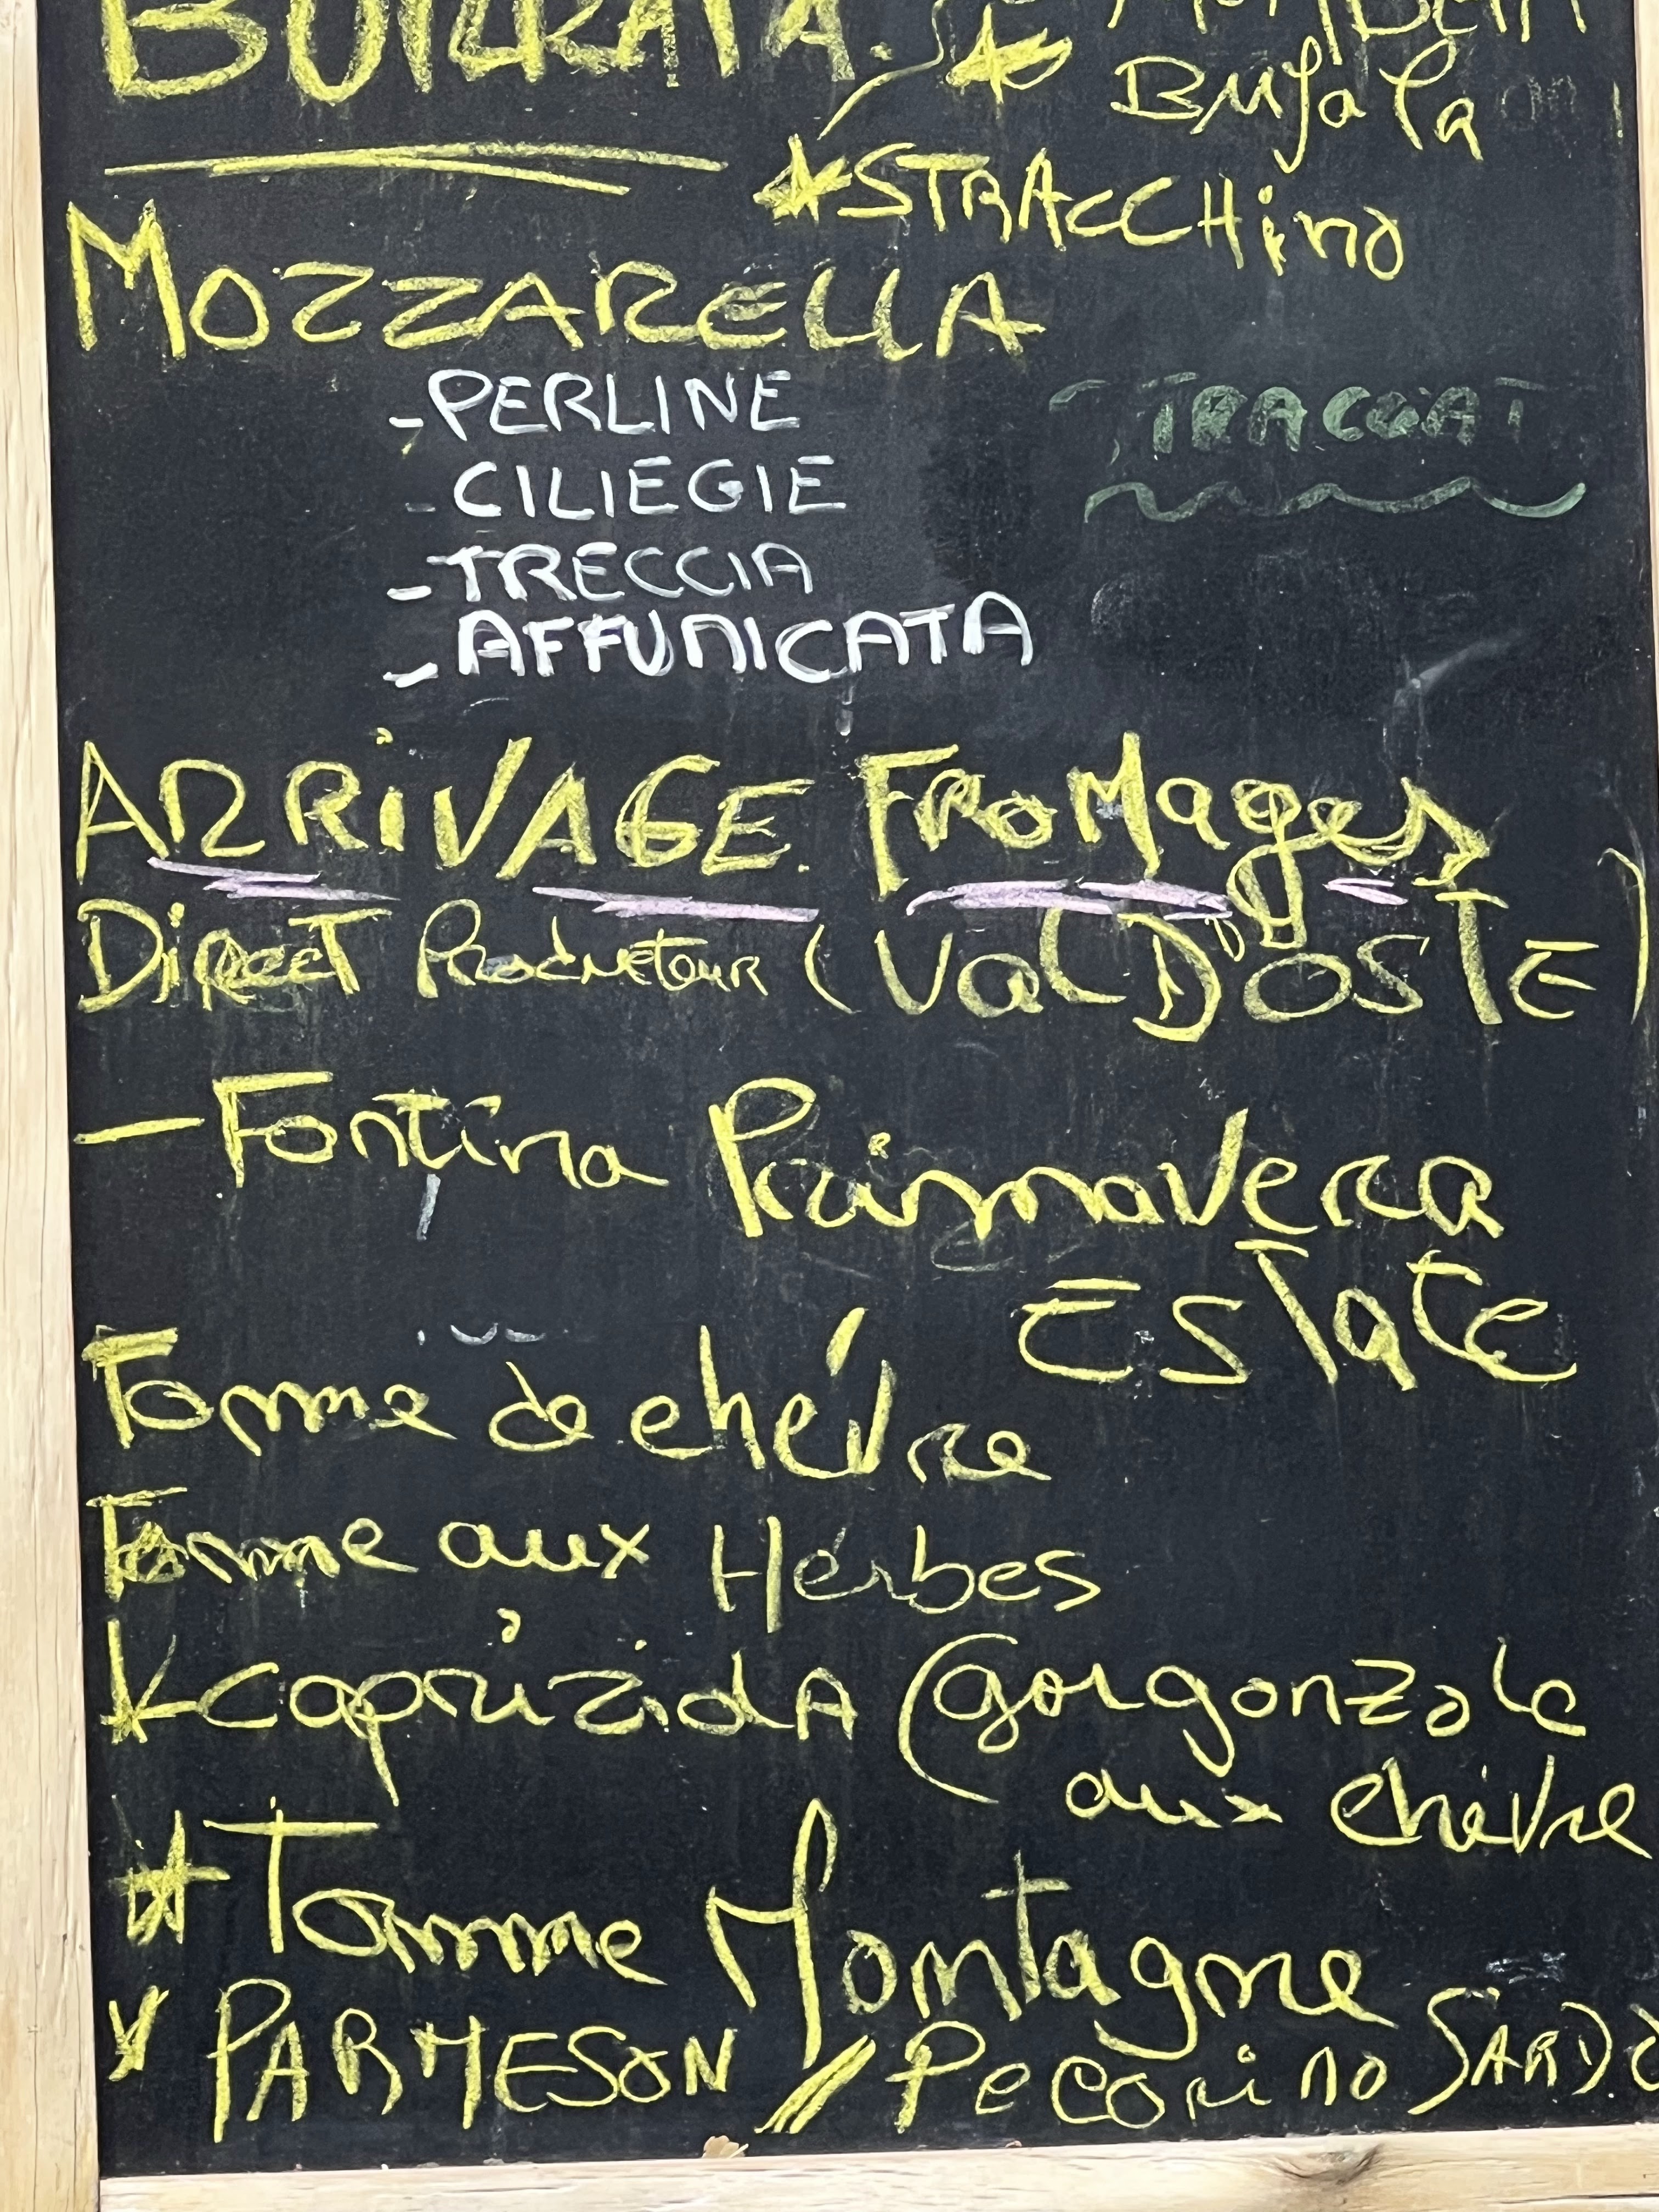 BURRATA.
Bufala
STRACCHino
MOZZARELLA
- PERLINE
- CILIEGIE
- TRECCIA
- AFFUNICATA
ARRiVAGE. FROMages
DiRECT PRoducteuR (Val D'OSTE)
- Fontina Primavera
ESTate
Tomme de chévre
Tomme aux Herbes
capriziola (gorgonzole
aux chèvre
Tomme Montagne
PARMESON // Pecorino SARDO